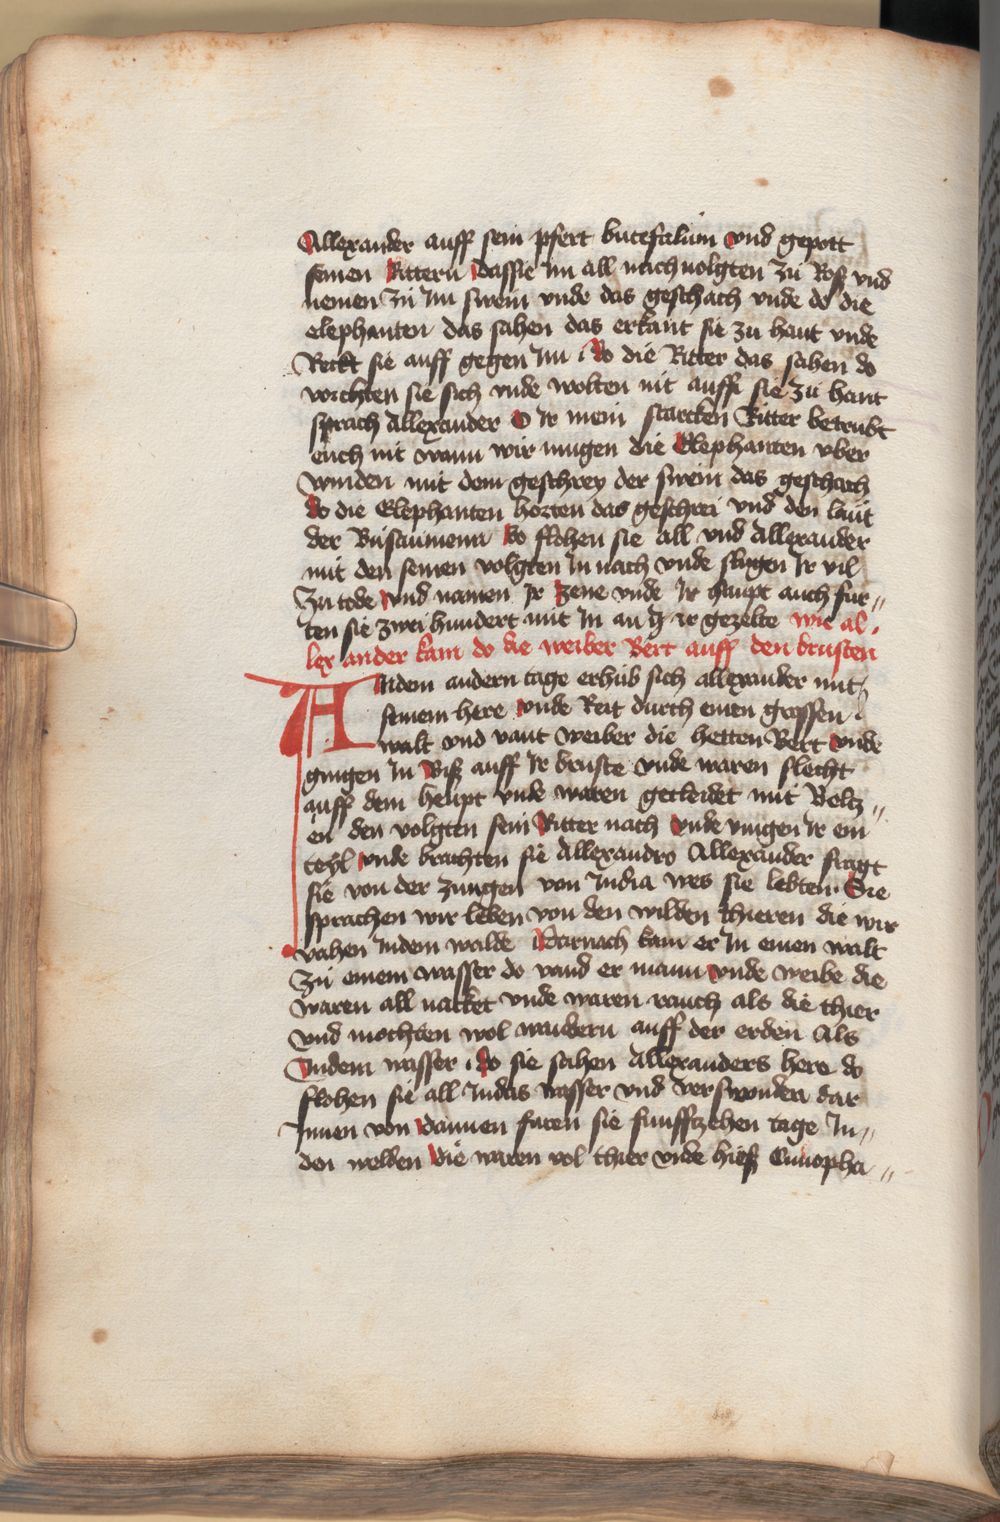 Allexander auff sein pfert bucefalum vnd gepott
seinen Rittern dassie im all nachuolgten zu Roß vnd
nemen zu im swein vnde das geschach vnde do die
elephanten das sahen das erkant sie zu hant vnde
Reckt sie auff gegen im Do die Ritter das sahen do
vorchten sie sich vnde wolten nit auff sie zu hant
sprach Allexander O Ir mein starcken Ritter betrubt
euch nit wann wir mugen die Elephanten vber
winden mit dem geschrey der swein das geschach
do die Elephanten horten das geschrei vnd den laut
der Busaumenn do flohen sie all vnd Allexander
mit den seinen volgten In nach vnde slugen Ir vil
Zu tode vnd namen Ir Zene vnde Ir haupt auch fur
ten sie zwei hundert mit In an Ir gezelte wie al
lex ander kam do die weiber Bert auff den brusten
Andem andern tage erhub sich allexander mit
seinem here vnde Reit durch einen grossen
walt vnd vant weiber die hetten Bert vnde
gingen In Biß auff Ir bruste vnde waren slecht
auff dem heupt vnde waren gecleidet mit Beltz
en den volgten sein Ritter nach vnde vingen Ir ein
teyl vnde brachten sie Allexandro Allexander fragt
sie von der zungen von India wes sie lebten Sie
sprachen wir leben von den wilden thieren die wir
vahen Indem walde Darnach kam er In einen walt
Zu einem wasser do vand er mann vnde weibe die
waren all nacket vnde waren rauch als die thier
vnd mochten wol wandern auff der erden Als
Indem wasser Do sie sahen Allexanders here do
flohen sie all Indas wasser vnd verswonden dar
Innen von dannen furen sie funffzehen tage In
den welden die waren vol thier vnde hieß Cinopha